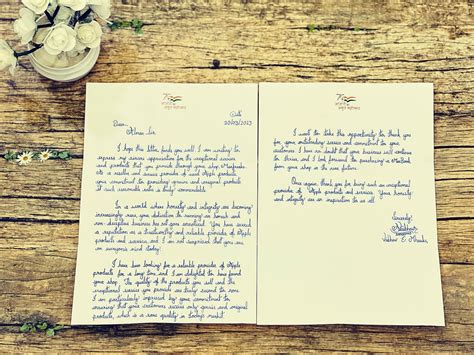 75
Delhi
20/03/2023
Dear,
Sir,
I hope this letter finds you well. I am writing to
express my sincere appreciation for the exceptional services
and products that you provide through your shop.
as a and service provider of Apple
products, your commitment to providing genuine and original products
at reasonable rates is truly commendable.
In a world where honesty and integrity are becoming
increasingly rare, your dedication to running an honest and
non-deceptive business has not gone unnoticed. You have earned
a reputation as a trustworthy and reliable provider of Apple
products and services, and I am not surprised that you are
everyone's
I have been looking for a reliable provider of Apple
products for a long time and I am delighted to have found
your shop. The quality of the products you sell and the
exceptional service you provide are truly second to none.
I am particularly impressed by your commitment to
ensuring that your customers receive only genuine and original
products, which is a rare quality in today's market.
75
I want to take this opportunity to thank you
for your outstanding service and commitment to your
customers. I have no doubt that your business will continue
to thrive, and I look forward to purchasing a MacBook
from your shop in the near future.
Once again, thank you for being such an exceptional
provider of Apple products and services. Your honesty
and integrity are an inspiration to us all.
Sincerely,